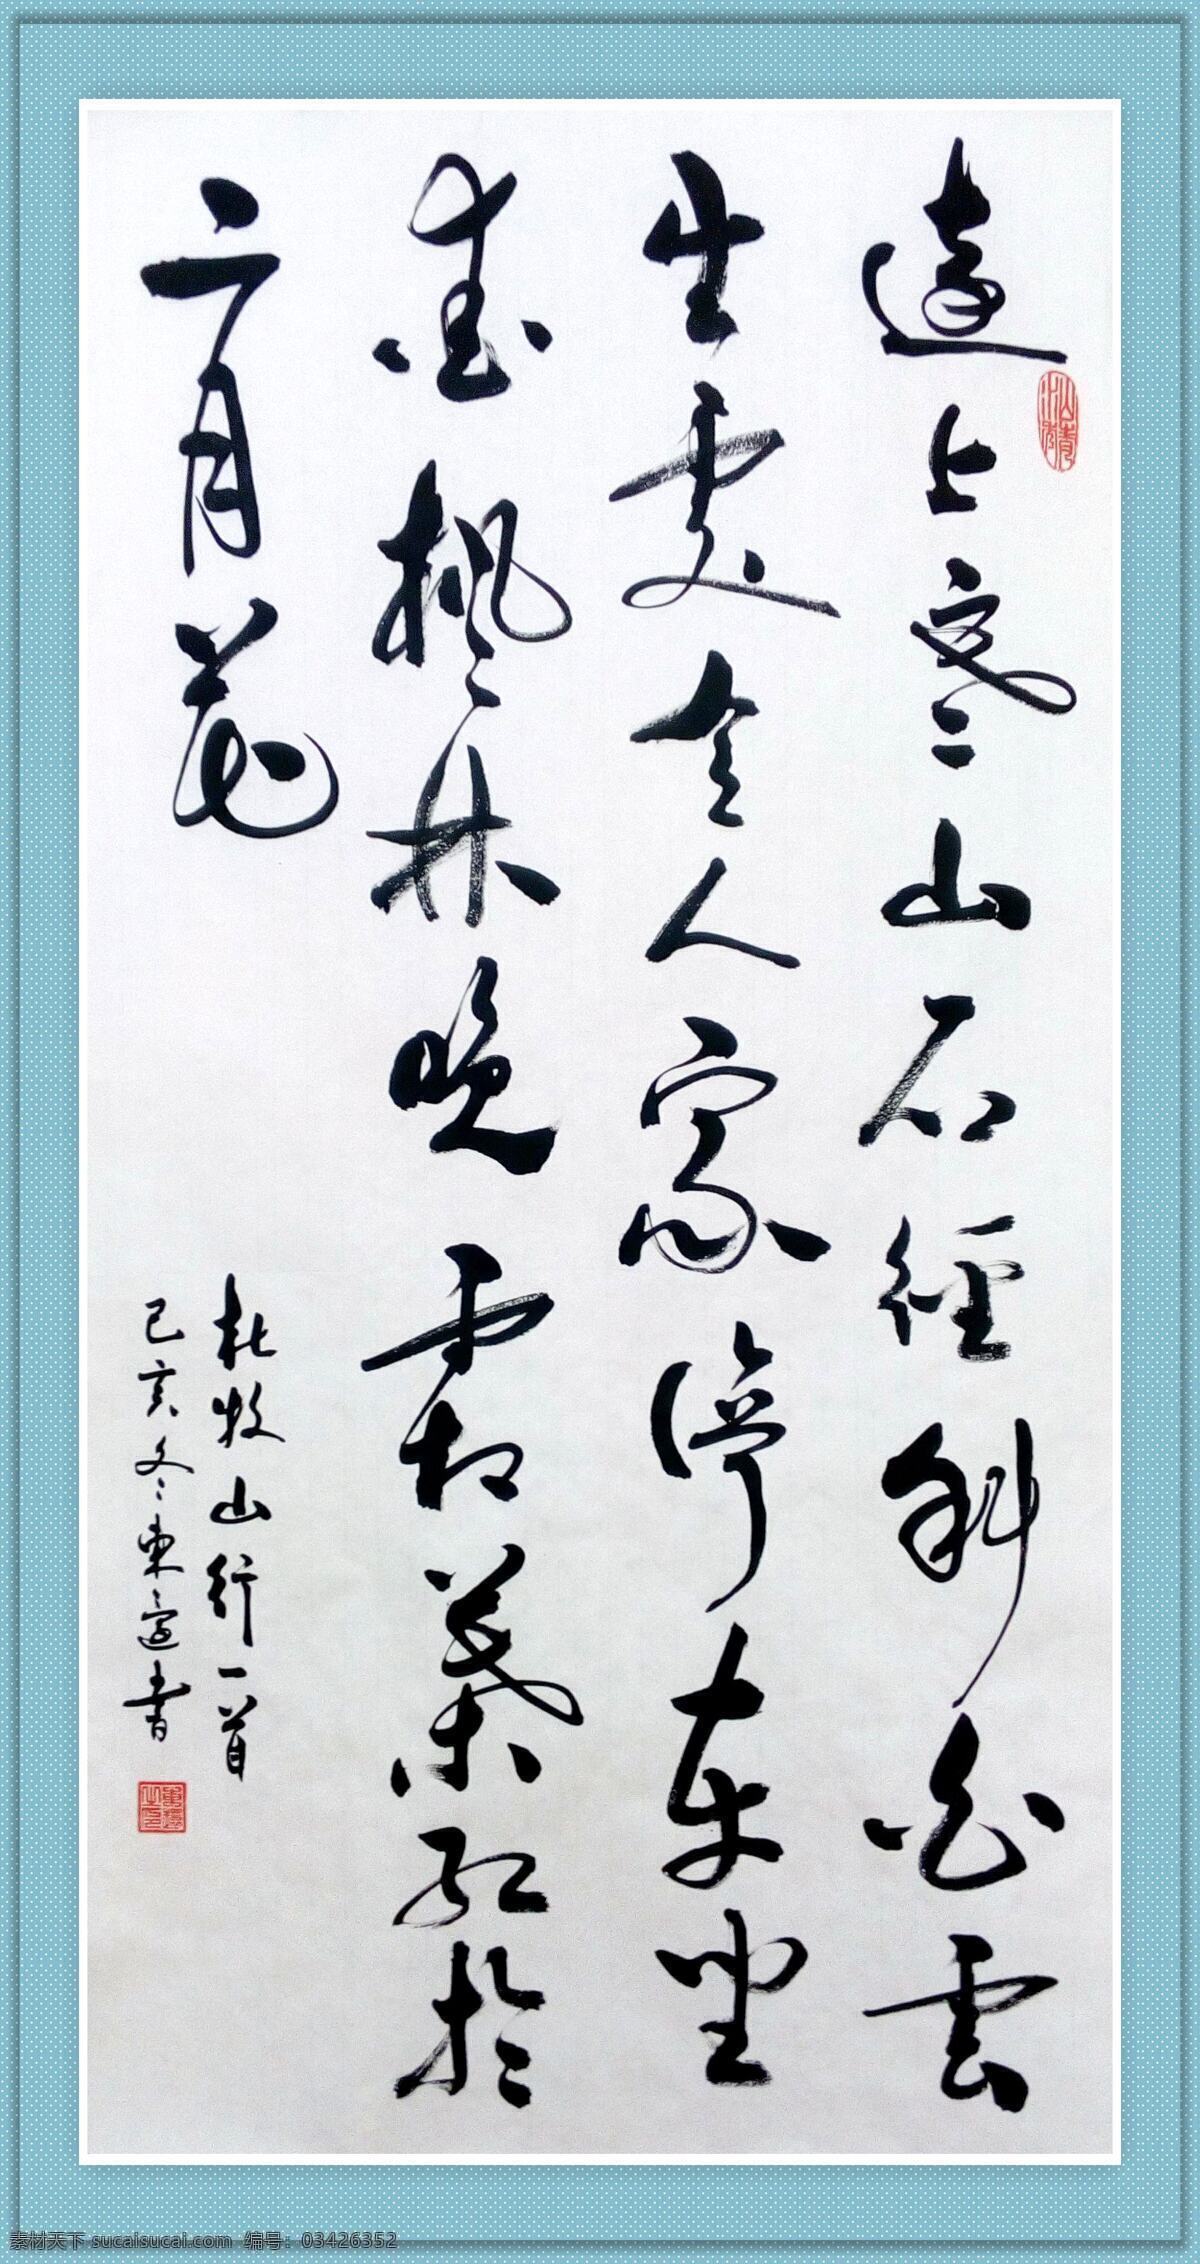 遠上寒山石徑斜白雲
生處有人家停車坐
愛楓林晚霜葉紅於
二月花
杜牧山行一首
己亥冬東書
素材天下 sucaisucai.com 编号：03426352